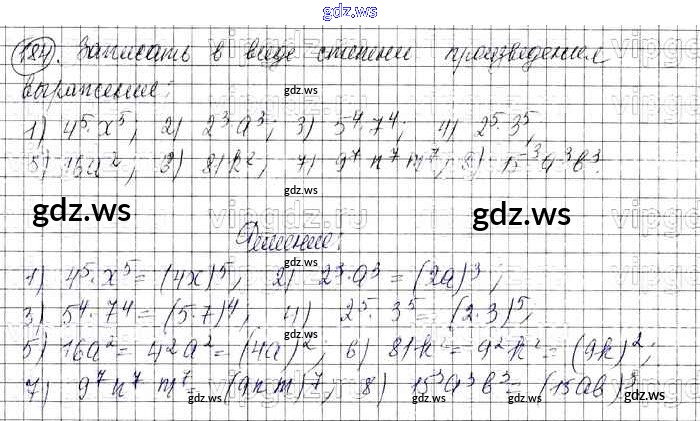 gdz.ws
184. Записать в виде степени произведения
выражение:
gdz.ws
1) 4⁵·x⁵; 2) 2³·a³; 3) 5⁴·7⁴; 4) 2⁵·3⁵;
5) 16a²; 6) 81k²; 7) 9⁷n⁷m⁷; 8) 15³a³b³.
gdz.ws
gdz.ws gdz.ws
Решение:
1) 4⁵·x⁵ = (4x)⁵; 2) 2³·a³ = (2a)³;
3) 5⁴·7⁴ = (5·7)⁴; 4) 2⁵·3⁵ = (2·3)⁵;
gdz.ws
5) 16a² = 4²a² = (4a)²; 6) 81k² = 9²k² = (9k)²;
7) 9⁷n⁷m⁷ = (9nm)⁷; 8) 15³a³b³ = (15ab)³.
gdz.ws gdz.ws gdz.ws